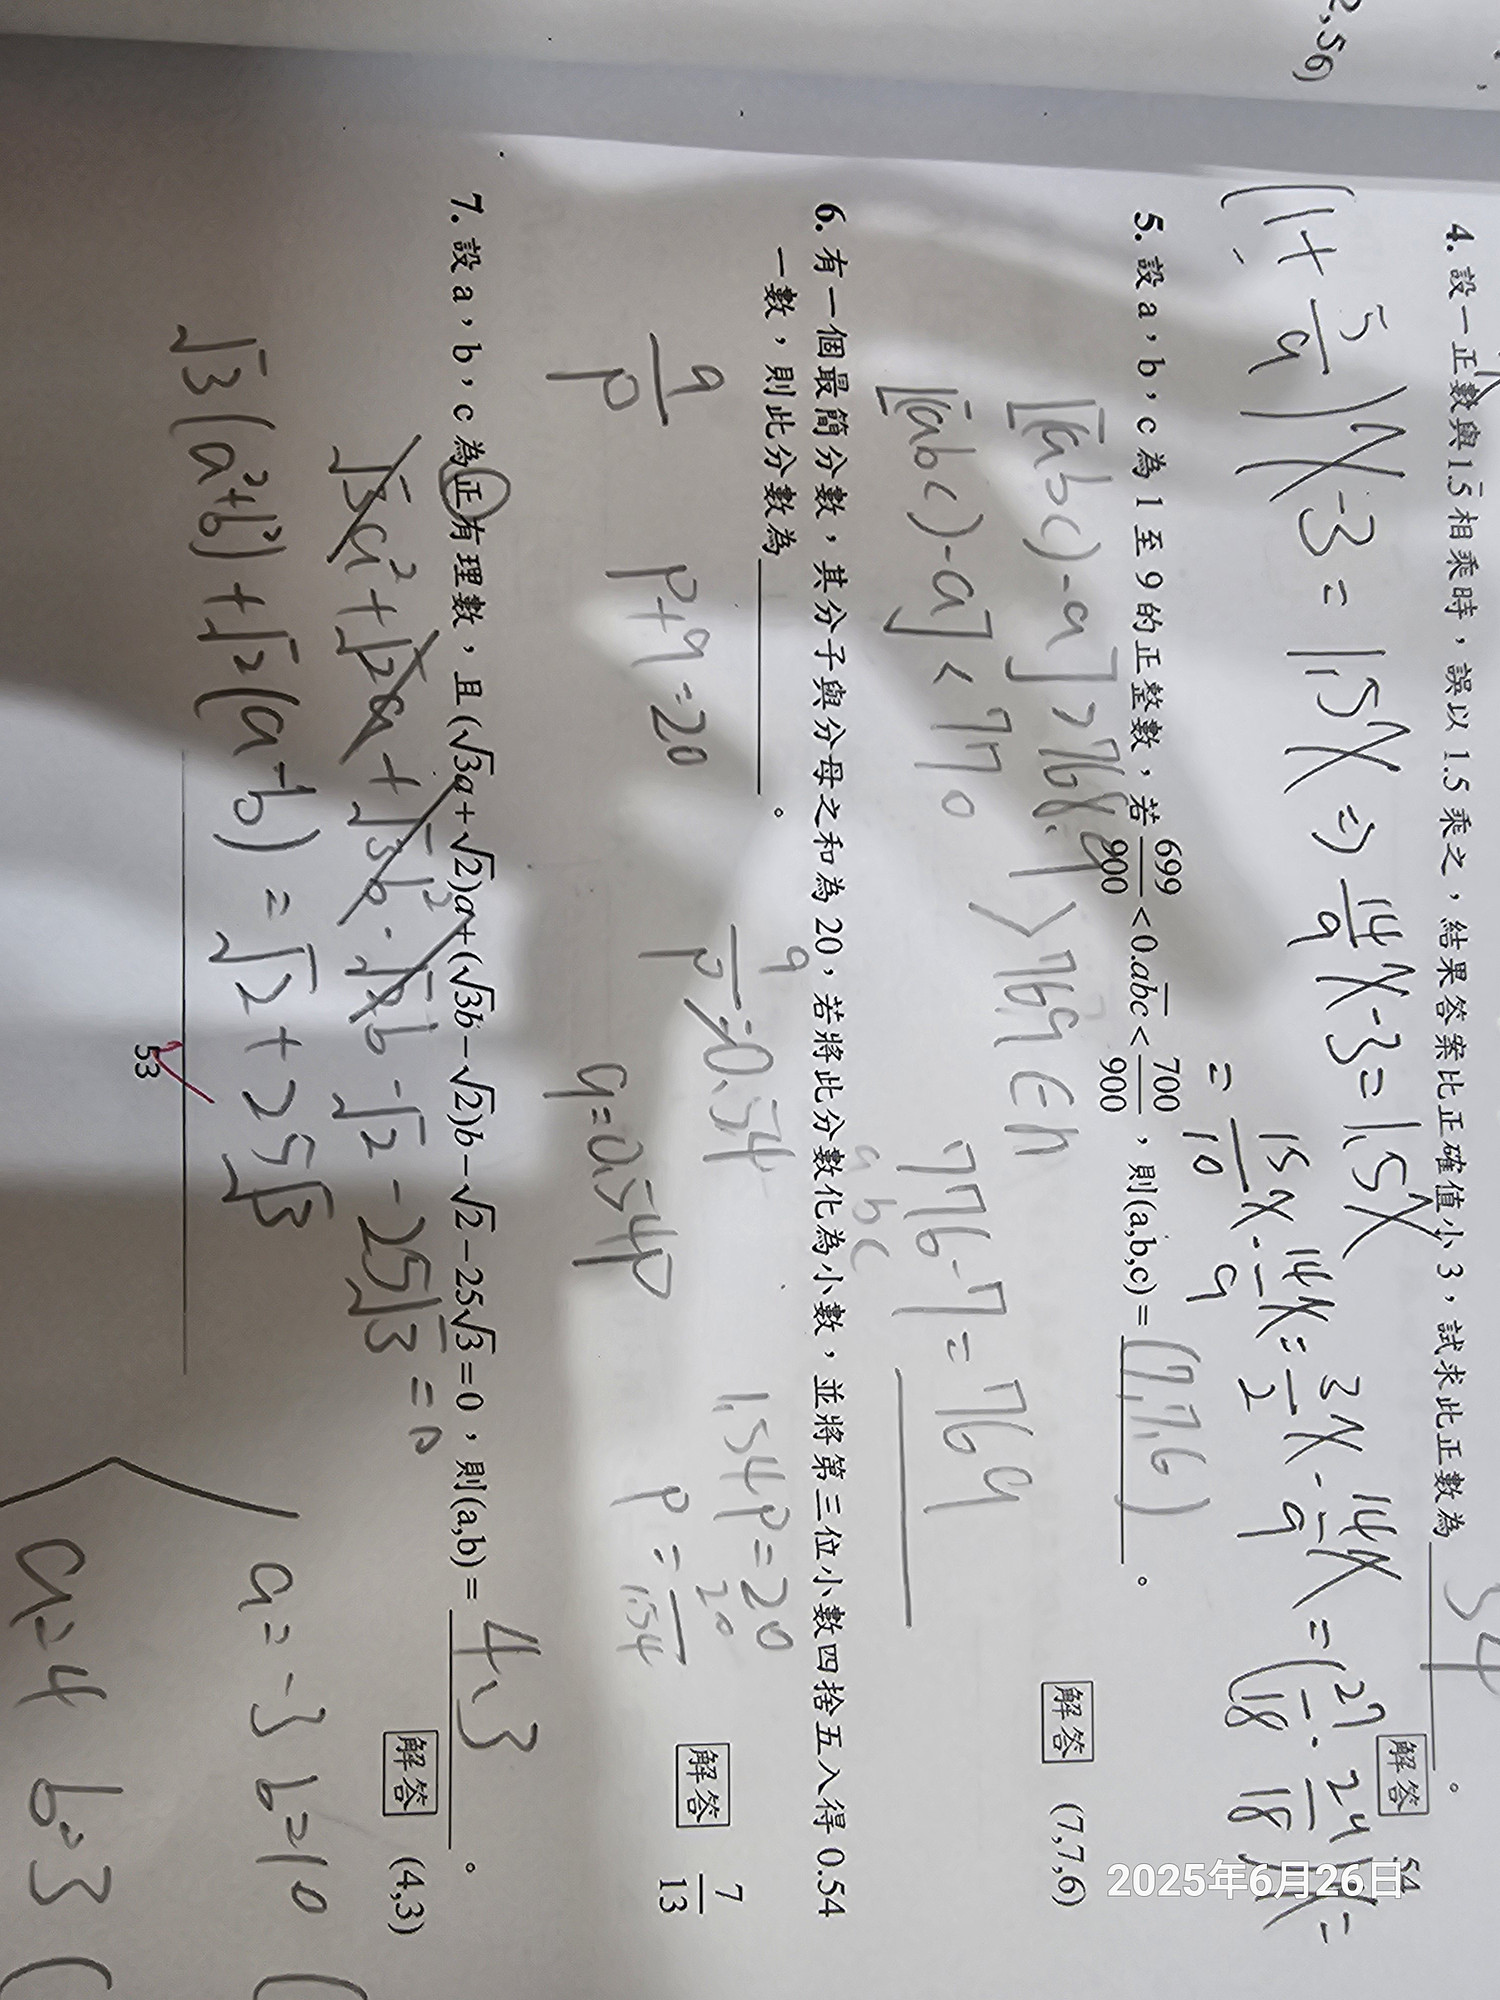 ,56)
4. 設一正數與1.5̅相乘時，誤以 1.5 乘之，結果答案比正確值小 3，試求此正數為 54 。
解答 54
(1+5/9)X-3=1.5X ⇒ 14/9X-3=1.5X
=15/10X-14/9X=3/2X-14/9X=(27/18-24/18)X=
5. 設 a，b，c 為 1 至 9 的正整數，若 699/900 < 0.abc̅ < 700/900，則(a,b,c)= (7,7,6) 。
[(abc)-a]>768.9 >769
[(abc)-a]<770
abc
776-7=769
解答 (7,7,6)
6. 有一個最簡分數，其分子與分母之和為 20，若將此分數化為小數，並將第三位小數四捨五入得 0.54
一數，則此分數為 。
q/p
p+q=20
q/p≒0.54
q=0.54p
1.54p=20
p=20/1.54
解答 7/13
7. 設 a，b，c 為正有理數，且(√3a+√2)a+(√3b−√2)b−√2−25√3=0，則(a,b)= 4、3 。
解答 (4,3)
√3a²+√2a+√3b²-√2b-√2-25√3=0
√3(a²+b²)+√2(a-b)=√2+25√3
a=-3 b=10
a=4 b=3
53
2025年6月26日